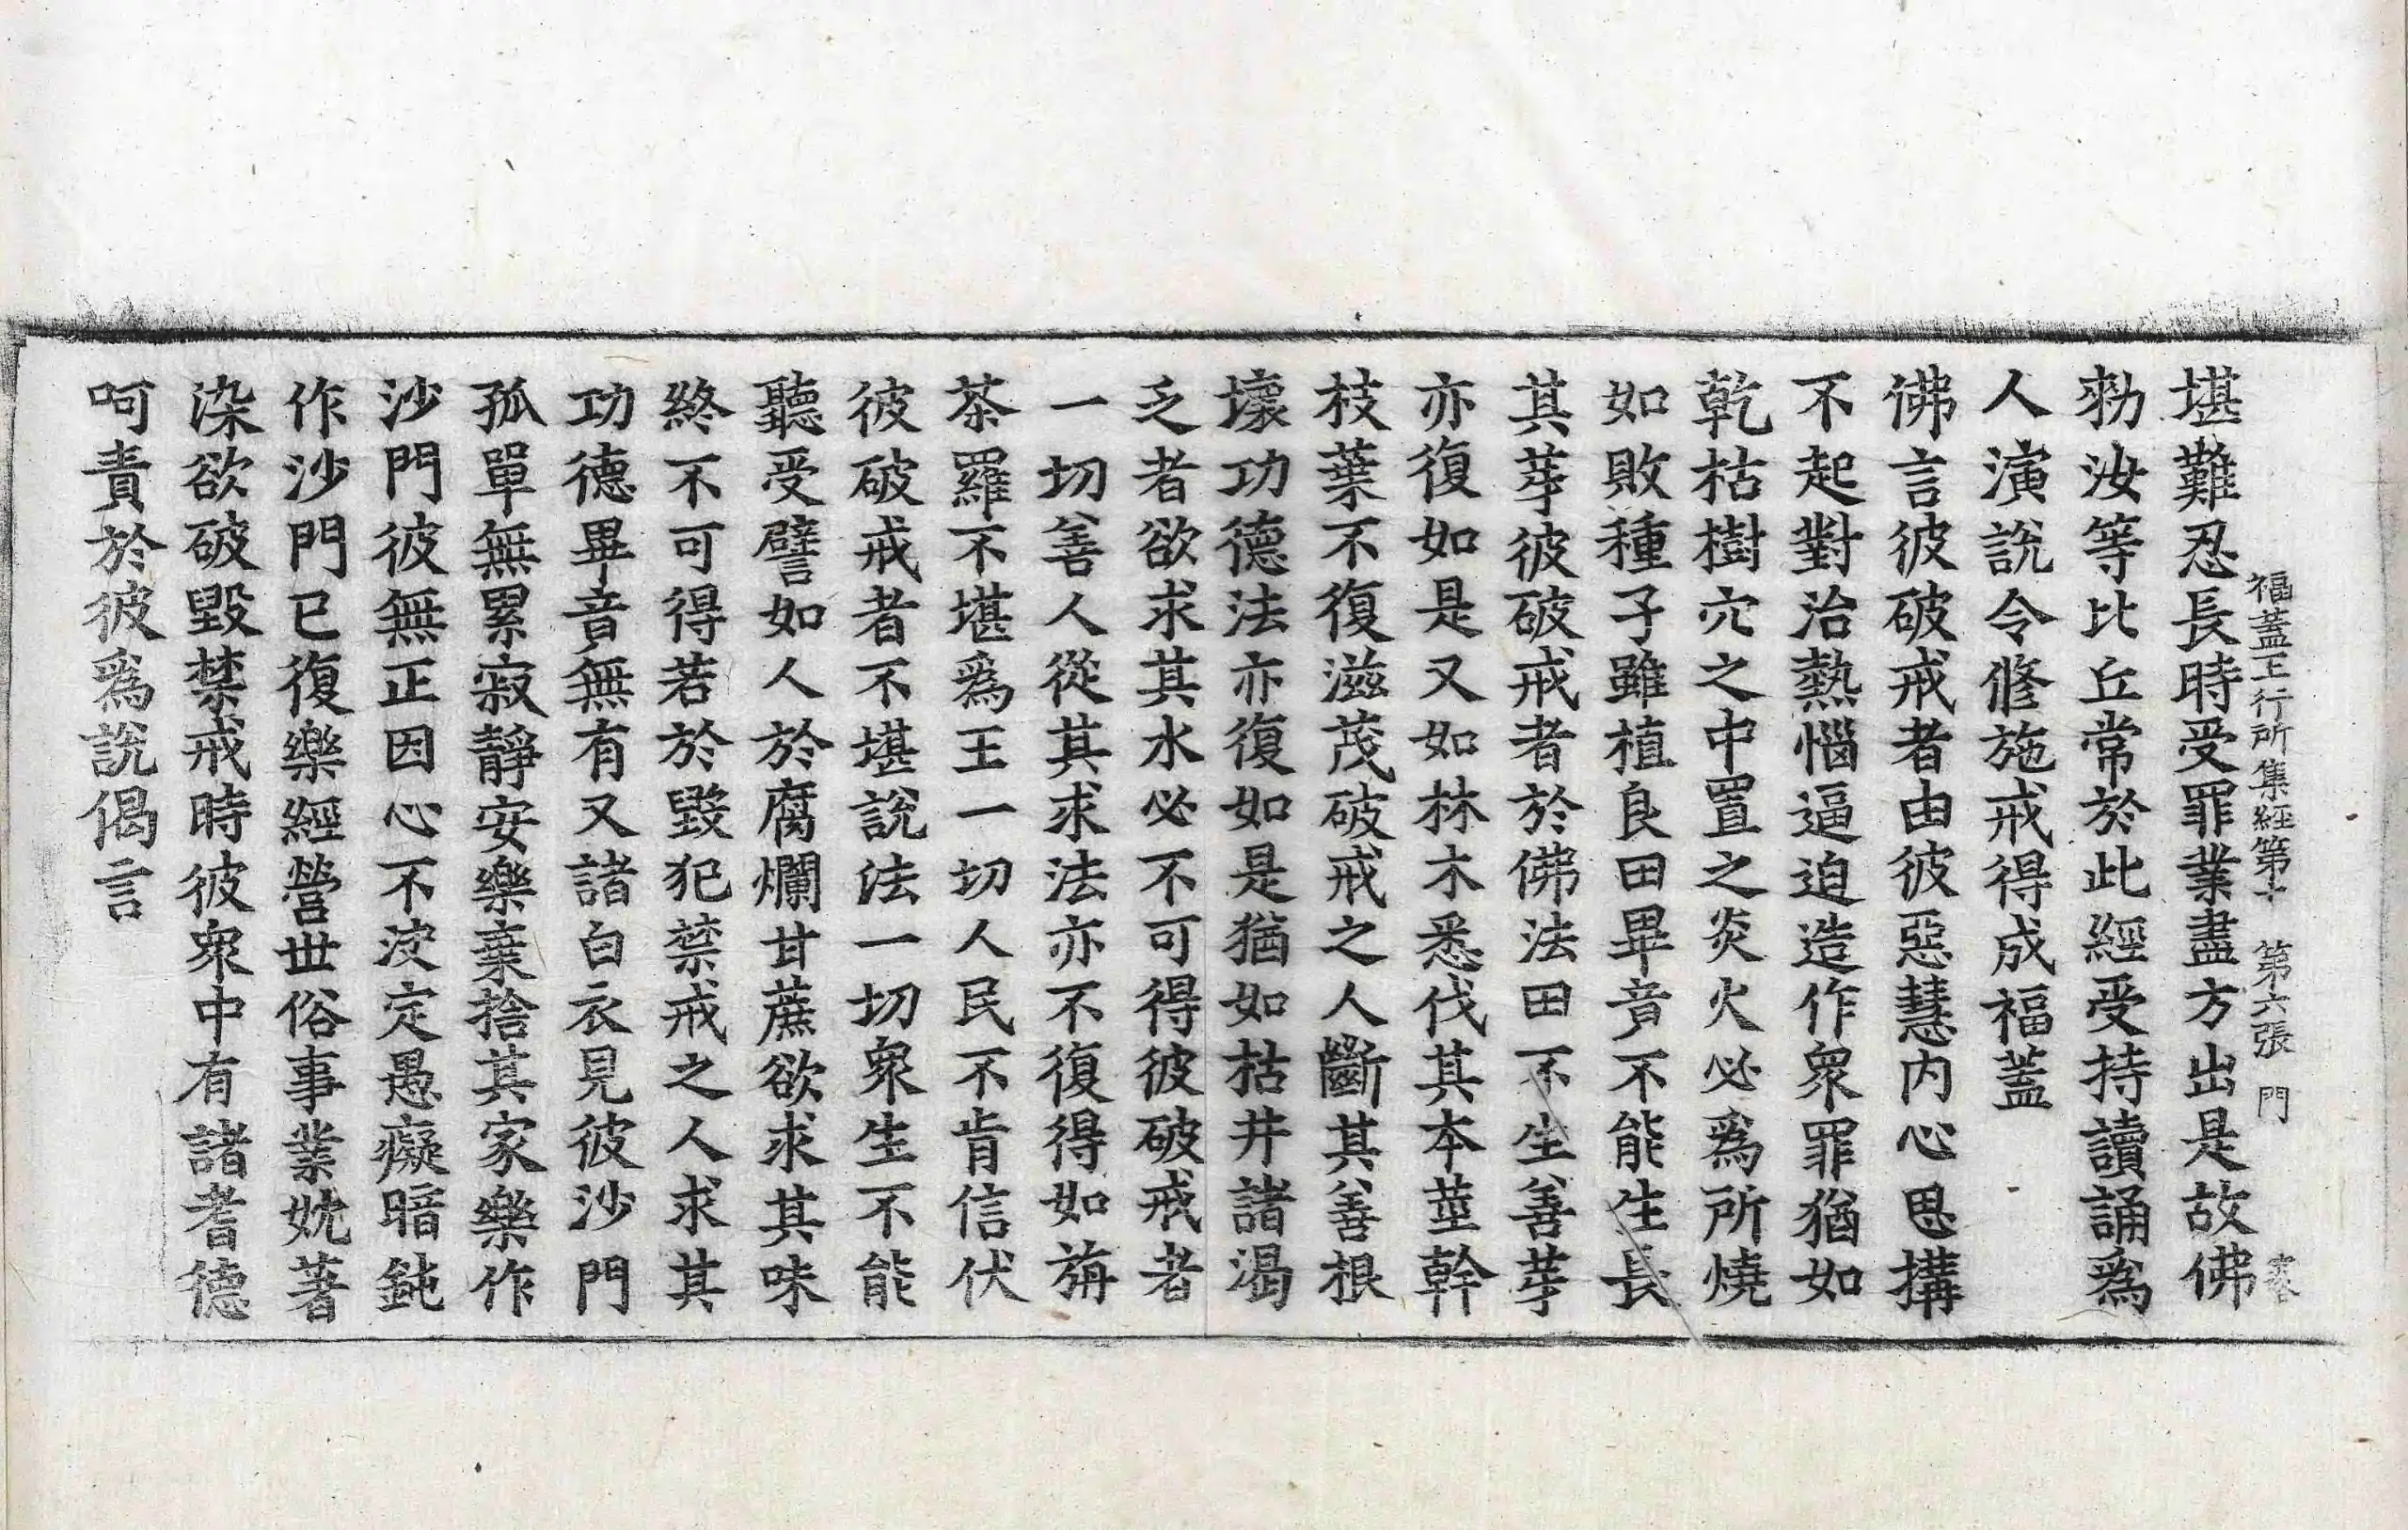 福蓋正行所集經第十 第六張 門
堪難忍長時受罪業盡方出是故佛
勑汝等比丘常於此經受持讀誦爲
人演說令脩施戒得成福蓋
佛言彼破戒者由彼惡慧内心思搆
不起對治熱惱逼迫造作衆罪猶如
乾枯樹穴之中置之炎火必爲所燒
如敗種子雖植良田畢竟不能生長
其芽彼破戒者於佛法田不生善芽
亦復如是又如林木悉伐其本莖幹
枝葉不復滋茂破戒之人斷其善根
壞功德法亦復如是猶如枯井諸渴
乏者欲求其水必不可得彼破戒者
一切善人從其求法亦不復得如旃
荼羅不堪爲王一切人民不肯信伏
彼破戒者不堪說法一切衆生不能
聽受譬如人於腐爛甘蔗欲求其味
終不可得若於毀犯禁戒之人求其
功德畢竟無有又諸白衣見彼沙門
孤單無累寂靜安樂棄捨其家樂作
沙門彼無正因心不决定愚癡暗鈍
作沙門已復樂經營世俗事業躭著
染欲破毀禁戒時彼衆中有諸耆德
呵責於彼爲說偈言